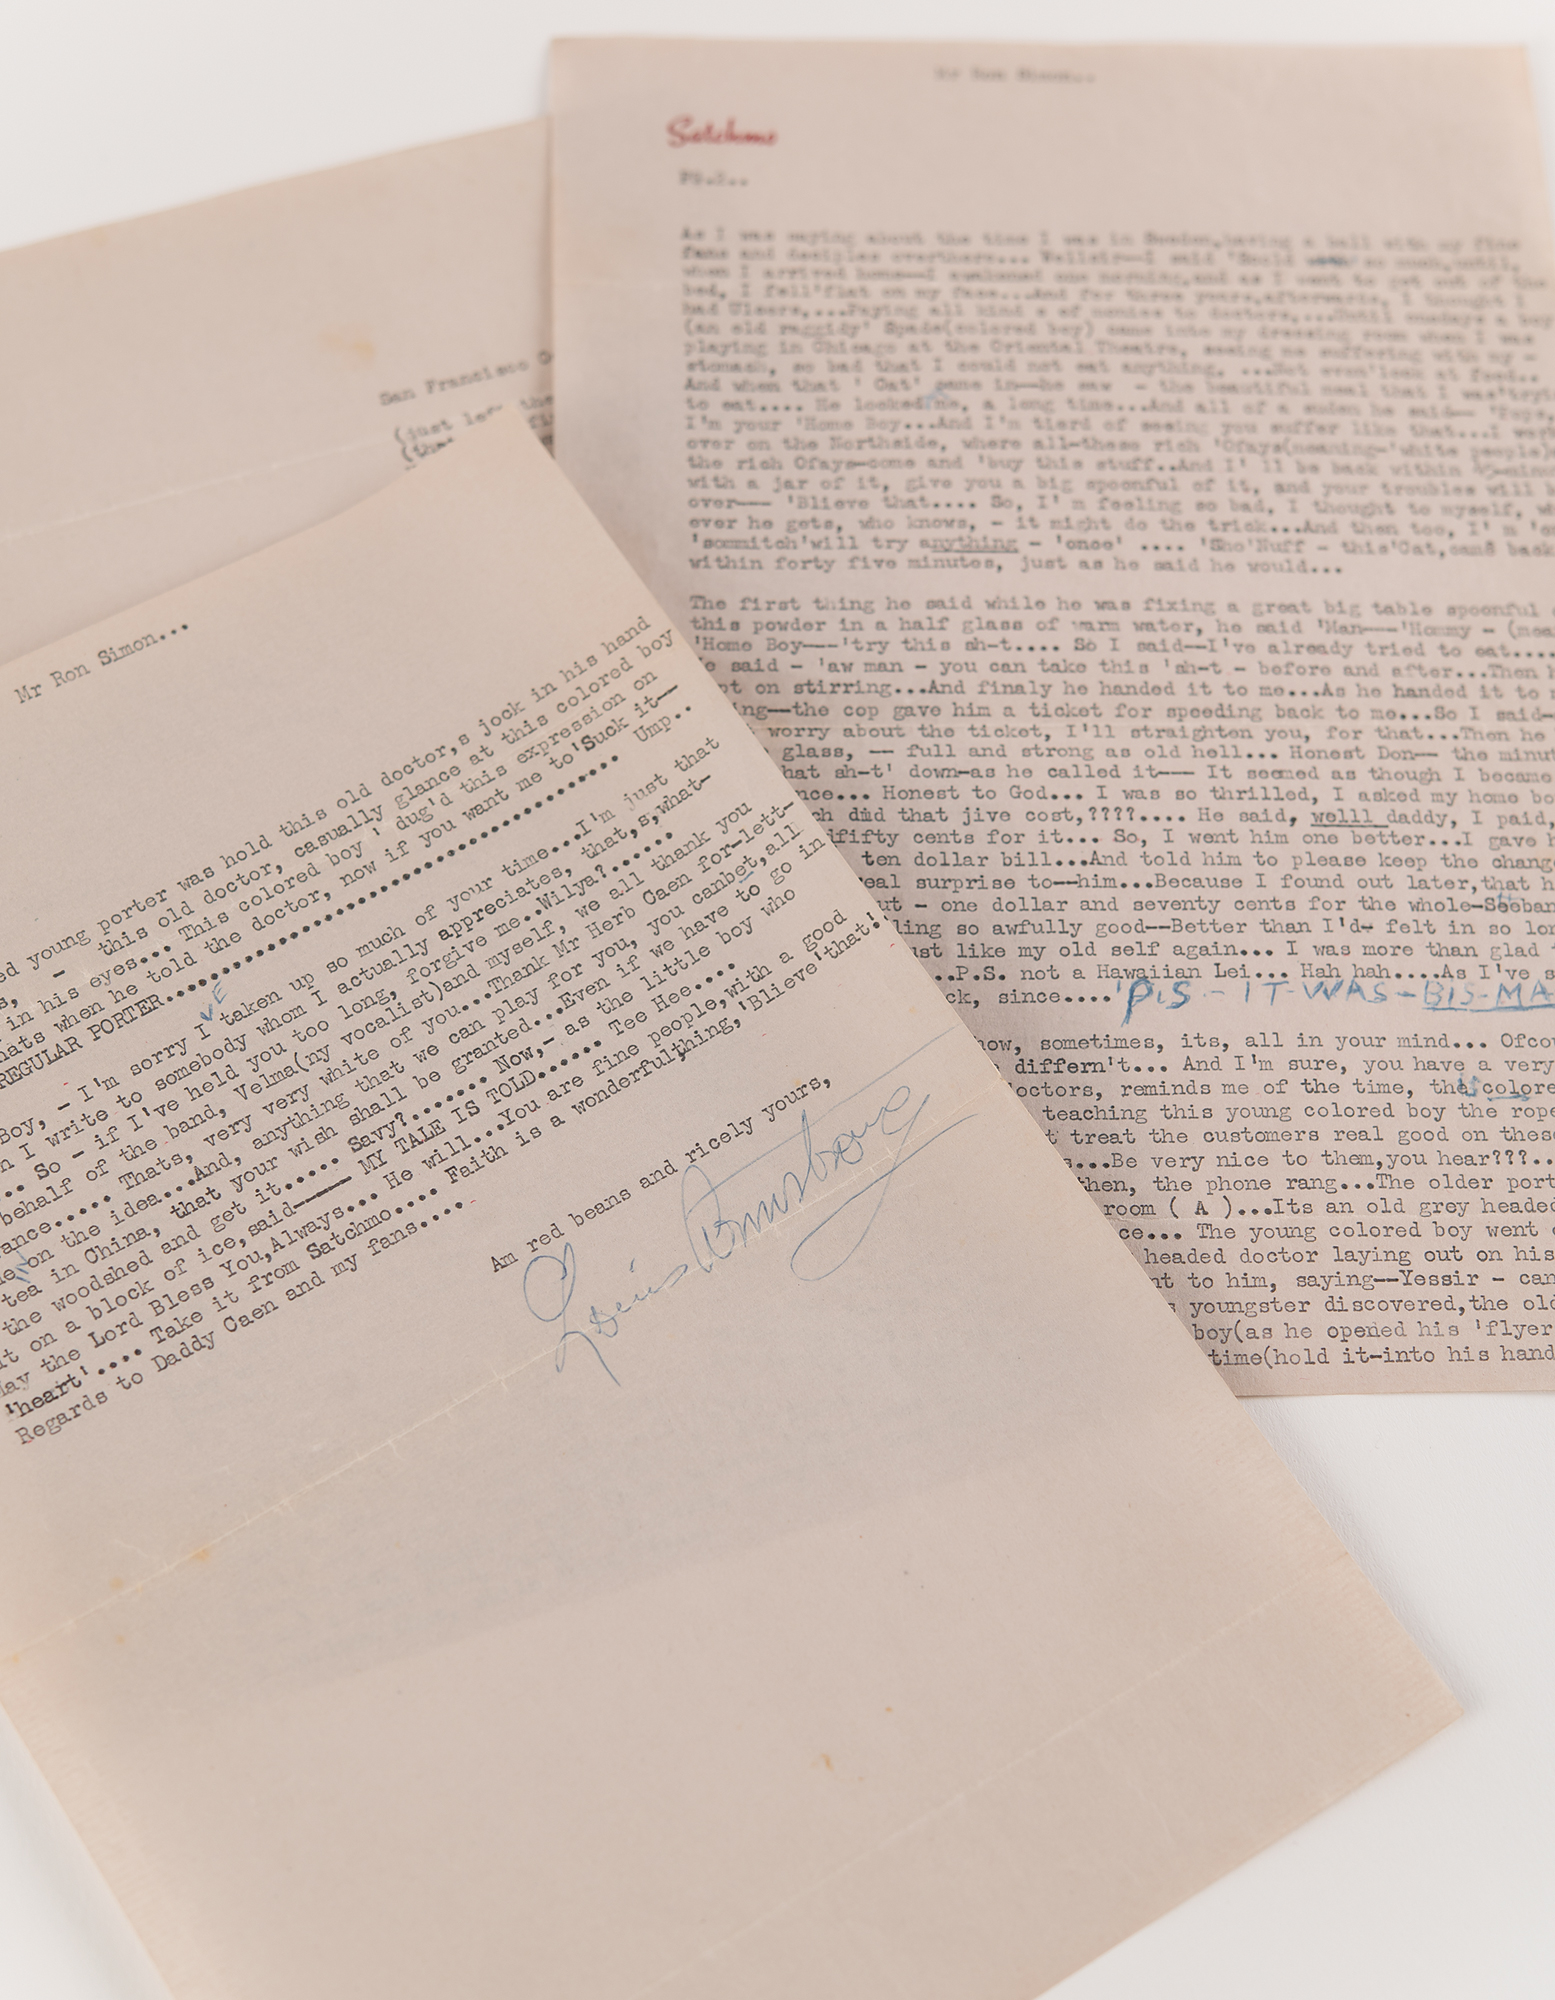 Mr Ron Simon..
Satchmo
Pg.2..
As I was saying about the time I was in Sweden,having a ball with my fine
fans and deciples overthere... Wellsir—I said 'Skold so much,until,
when I arrived home—I awakened one morning,and as I went to get out of the
bed, I fell'flat on my face...And for three years,afterwards, I thought I
had Ulsers,...Paying all kind s of monies to doctors,...Until onedays a boy
(an old raggidy' Spade(colored boy) came into my dressing room when I was
playing in Chicago at the Oriental Theatre, seeing me suffering with my -
stomach, so bad that I could not eat anything. ...Not even'look at food..
And when that ' Cat' came in—he saw - the beautiful meal that I was'tryi
to eat.... He looked me, a long time...And all of a suden he said— 'Pops,
I'm your 'Home Boy...And I'm tierd of seeing you suffer like that...I
over on the Northside, where all-these rich 'Ofays(meaning-'white people)
the rich Ofays-come and 'buy this stuff..And I' ll be back within 45-minu
with a jar of it, give you a big spoonful of it, and your troubles will b
over—- 'Blieve that.... So, I' m feeling so bad, I thought to myself, w
ever he gets, who knows, - it might do the trick...And then too, I' m
'sommitch'will try anything - 'once' .... 'Sho'Nuff - this'Cat,came back
within forty five minutes, just as he said he would...
The first thing he said while he was fixing a great big table spoonful
this powder in a half glass of warm water, he said 'Man—-'Hommy - (mea
'Home Boy—-'try this sh-t.... So I said—I've already tried to eat....
e said - 'aw man - you can take this 'sh-t - before and after...Then h
pt on stirring...And finaly he handed it to me...As he handed it to m
ing—the cop gave him a ticket for speeding back to me...So I said-
worry about the ticket, I'll straighten you, for that...Then he
glass, — full and strong as old hell... Honest Don— the minut
hat sh-t' down-as he called it—- It seemed as though I became
nce... Honest to God... I was so thrilled, I asked my home bo
ch did that jive cost,????.... He said, welll daddy, I paid,
fifty cents for it... So, I went him one better...I gave h
ten dollar bill...And told him to please keep the change
eal surprise to—him...Because I found out later,that h
ut - one dollar and seventy cents for the whole-Seeban
ling so awfully good—Better than I'd- felt in so lon
ust like my old self again... I was more than glad t
..P.S. not a Hawaiian Lei... Hah hah....As I've s
ck, since.... 'P.S - IT-WAS-BIS-MA
how, sometimes, its, all in your mind... Ofcou
differn't... And I'm sure, you have a very
octors, reminds me of the time, the colore
teaching this young colored boy the rope
t treat the customers real good on these
s...Be very nice to them,you hear???..
then, the phone rang...The older port
room ( A )...Its an old grey headed
ce... The young colored boy went
headed doctor laying out on his
nt to him, saying—Yessir - can
s youngster discovered,the old
boy(as he opened his 'flyer
time(hold it-into his hand
San Francisco
(just left the
(the
Mr Ron Simon...
ed young porter was hold this old doctor,s jock in his hand
s, - this old doctor, casually glance at this colored boy
in his eyes... This colored boy ' dug'd this expression on
hats when he told the doctor, now if you want me to'Suck it—
REGULAR PORTER........................................ Ump..
Boy, - I'm sorry I 'VE taken up so much of your time...I'm just that
n I write to somebody whom I actually appreciates, that,s,what-
... So - if I've held you too long, forgive me..Wilya?......
behalf of the band, Velma(my vocalist)and myself, we all thank you
ance..... Thats, very very white of you...Thank Mr Herb Caen for-lett-
me IN on the idea...And, anything that we can play for you, you canbet,all
tea in China, that your wish shall be granted...Even if we have to go in
the woodshed and get it..... Savy?....... Now,- as the little boy who
t on a block of ice,said—-— MY TALE IS TOLD...... Tee Hee....
May the Lord Bless You,Always... He will...You are fine people,with a good
'heart'.... Take it from Satchmo.... Faith is a wonderful,thing,'Blieve'that!'
Regards to Daddy Caen and my fans....
Am red beans and ricely yours,
Louis Armstrong